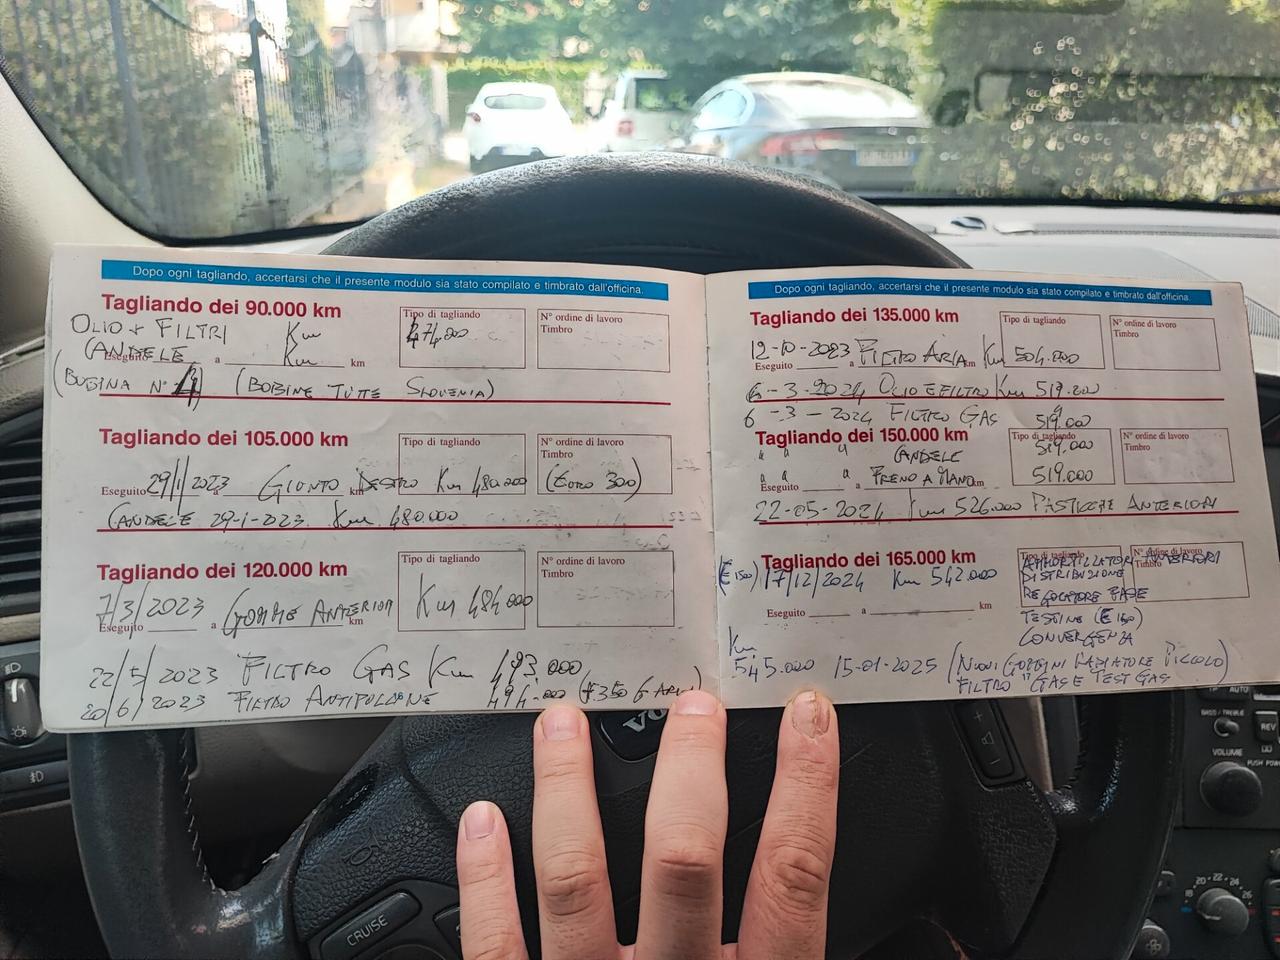 Dopo ogni tagliando, accertarsi che il presente modulo sia stato compilato e timbrato dall'officina.
Tagliando dei 90.000 km
Tipo di tagliando
N° ordine di lavoro
Timbro
OLIO + FILTRI Km 474.000
CANDELE Km
Eseguito a km
(BOBINA N° 4) (BOBINE TUTTE SLOVENIA)
Tagliando dei 105.000 km
Tipo di tagliando
N° ordine di lavoro
Timbro
Eseguito 29/1/2023 GIUNTO DESTRO Km 480.000 (EURO 300)
CANDELE 29-1-2023 Km 480000
Tagliando dei 120.000 km
Tipo di tagliando
N° ordine di lavoro
Timbro
7/3/2023 GOMME ANTERIORI Km 484.000
Eseguito a km
22/5/2023 FILTRO GAS Km 493.000
20/6/2023 FILTRO ANTIPOLLINE 494.000
Dopo ogni tagliando, accertarsi che il presente modulo sia stato compilato e timbrato dall'officina.
Tagliando dei 135.000 km
Tipo di tagliando
N° ordine di lavoro
Timbro
12-10-2023 FILTRO ARIA Km 504.000
Eseguito a km
6-3-2024 OLIO E FILTRO Km 519.000
6-3-2024 FILTRO GAS 519.000
Tagliando dei 150.000 km
Tipo di tagliando
N° ordine di lavoro
Timbro
" " " CANDELE 519.000
" " " FRENO A MANO 519.000
Eseguito a km
22-05-2024 Km 526.000 PASTICCHE ANTERIORI
Tagliando dei 165.000 km
Tipo di tagliando
N° ordine di lavoro
Timbro
17/12/2024 Km 542.000
AMMORTIZZATORI ANTERIORI
DISTRIBUZIONE
REGOLATORE FASE
TESTINE (€ 150)
CONVERGENZA
Eseguito a km
Km
545.000 15-01-2025 (NUOVI GOMMINI RADIATORE PICCOLO)
FILTRO GAS E TEST GAS
CRUISE
AUTO
BASS/TREBLE
REV
VOLUME
18 20 22 24 26